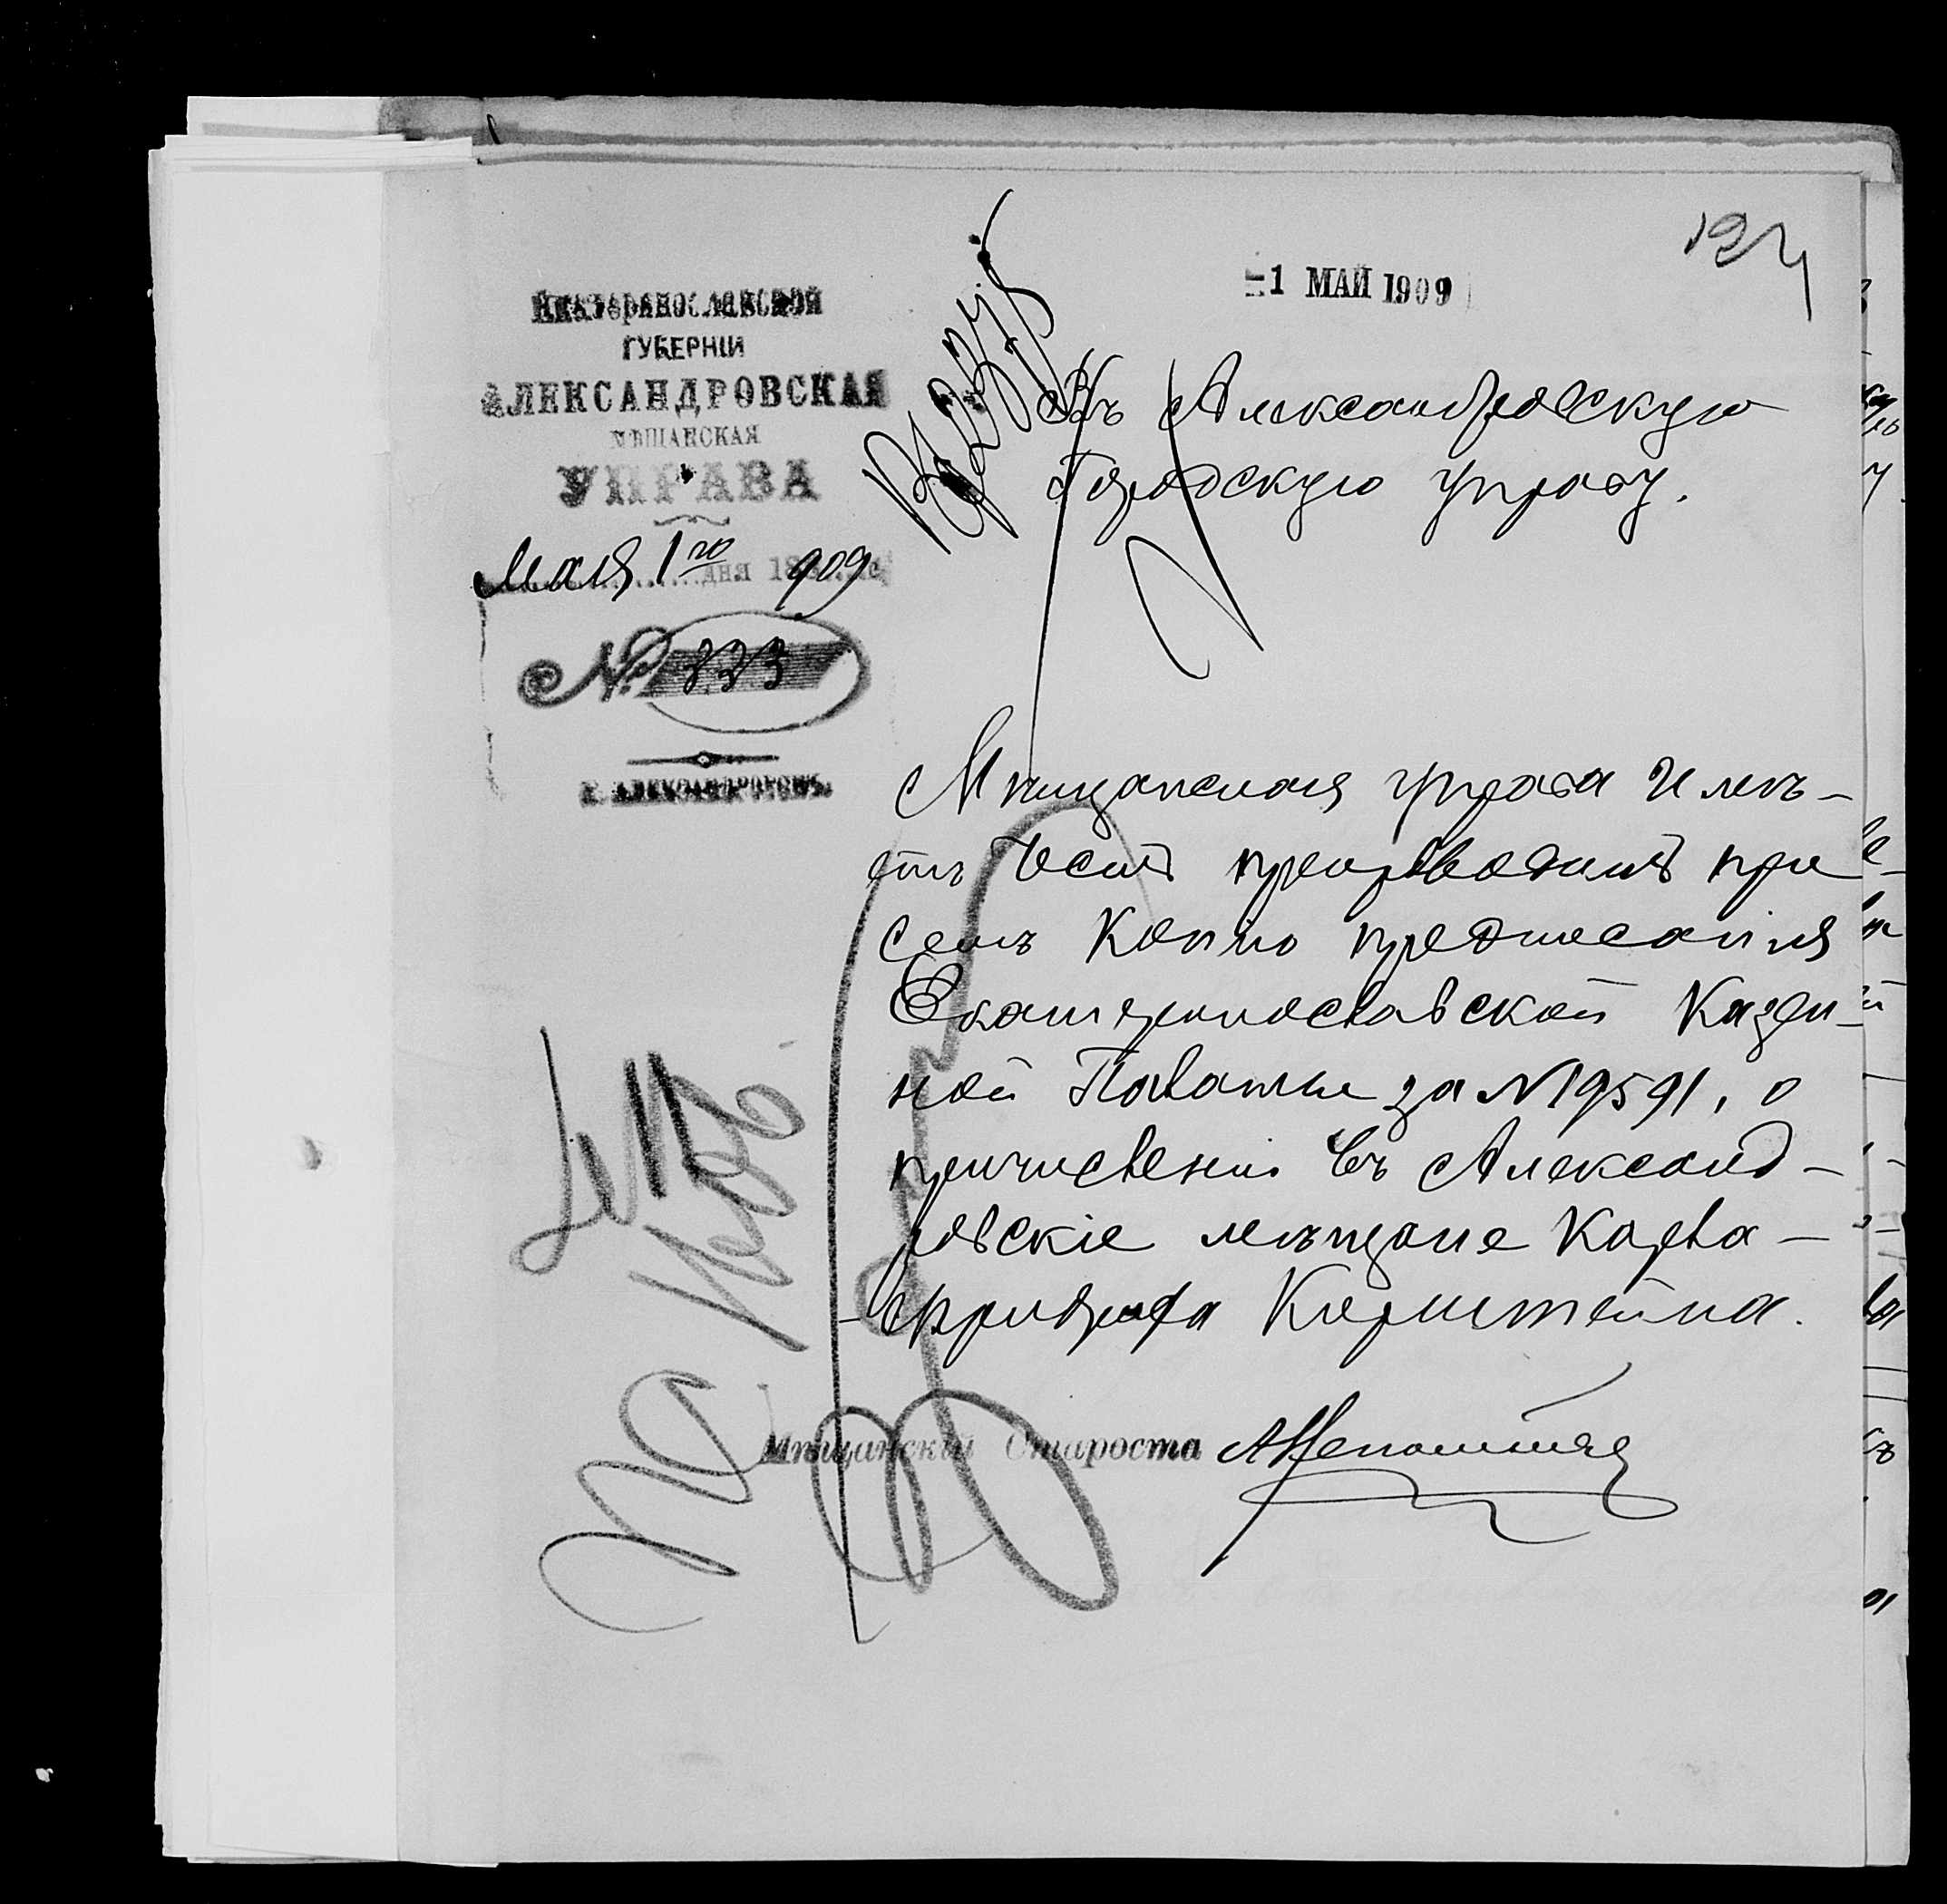 124
1 МАЙ 1909
ЕКАТЕРИНОСЛАВСКОЙ
ГУБЕРНІИ
АЛЕКСАНДРОВСКАЯ
МѢЩАНСКАЯ
УПРАВА
Мая 1го дня 1909
№ 223
Г. АЛЕКСАНДРОВСКЪ.
Въ Александровскую
Городскую управу.
Мѣщанская управа имѣ-
етъ честь препроводить при
семъ копію предписанія
Екатеринославской Казен-
ной Палаты за №19591, о
причисленіи въ Александ-
ровскіе мѣщане Карла-
Фридриха Корнштейна.
Мѣщанскій Староста